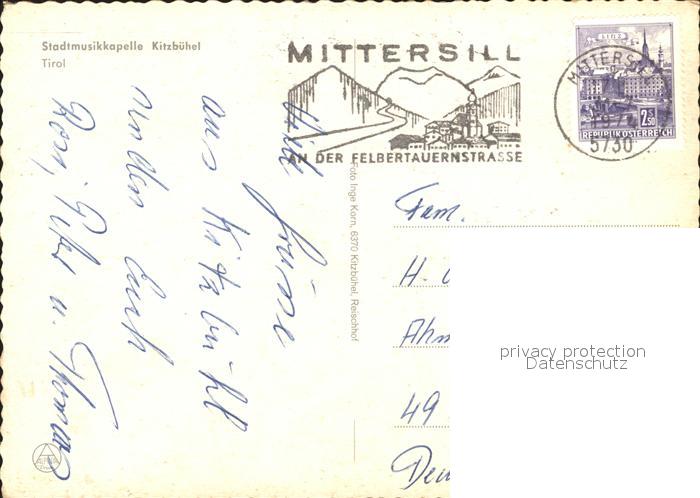 Stadtmusikkapelle Kitzbühel
Tirol
MITTERSILL
AN DER FELBERTAUERNSTRASSE
LINZ
2.50
REPUBLIK ÖSTERREICH
MITTERSILL
5730
Foto Inge Korn, 6370 Kitzbühel, Reischhof
Viele
Grüsse
aus Kitzbühl
senden Euch
u. Thomas
Fam.
H.
49
privacy protection
Datenschutz